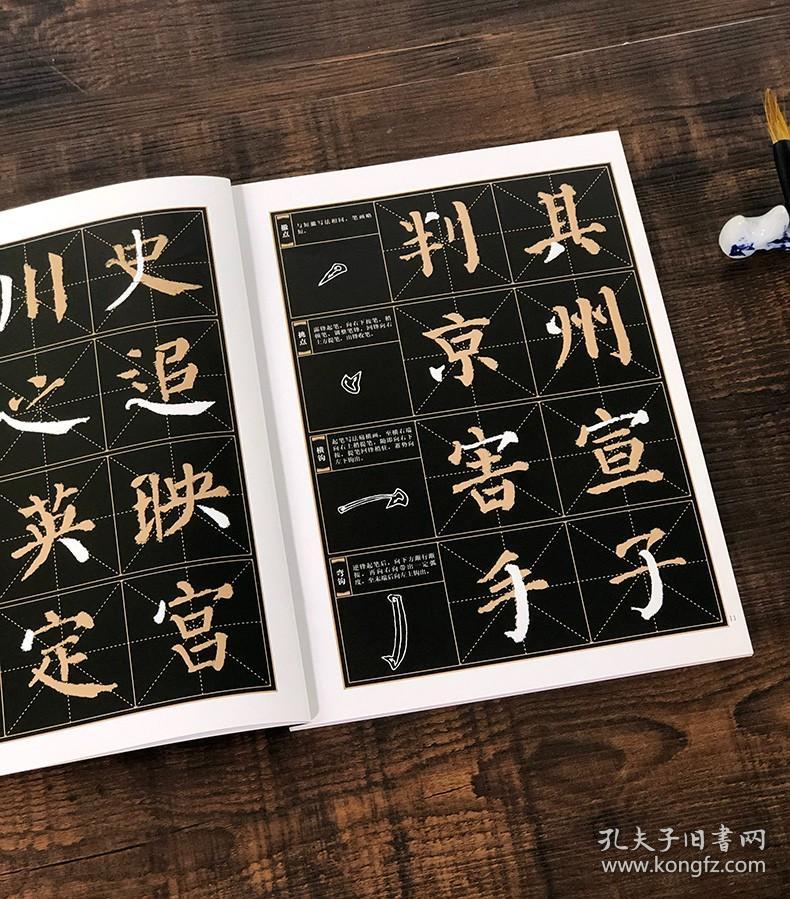 川史
之追
英映
定宫
撇点
与短撇写法相同，笔画略
短。
判其
挑点
露锋起笔，向右下按笔，稍
顿笔，调整笔锋，回锋向右
上方提笔，出锋收笔。
京州
横钩
起笔写法稍横画，至横右端
向右上稍提笔，随即向右下
按，提笔回锋稍驻，蓄势向
左下钩出。
害宣
弯钩
逆锋起笔后，向下方渐行渐
按，再向右向带出一定弧
度，至末端后向左上钩出。
手子
11
孔夫子旧书网
www.kongfz.com